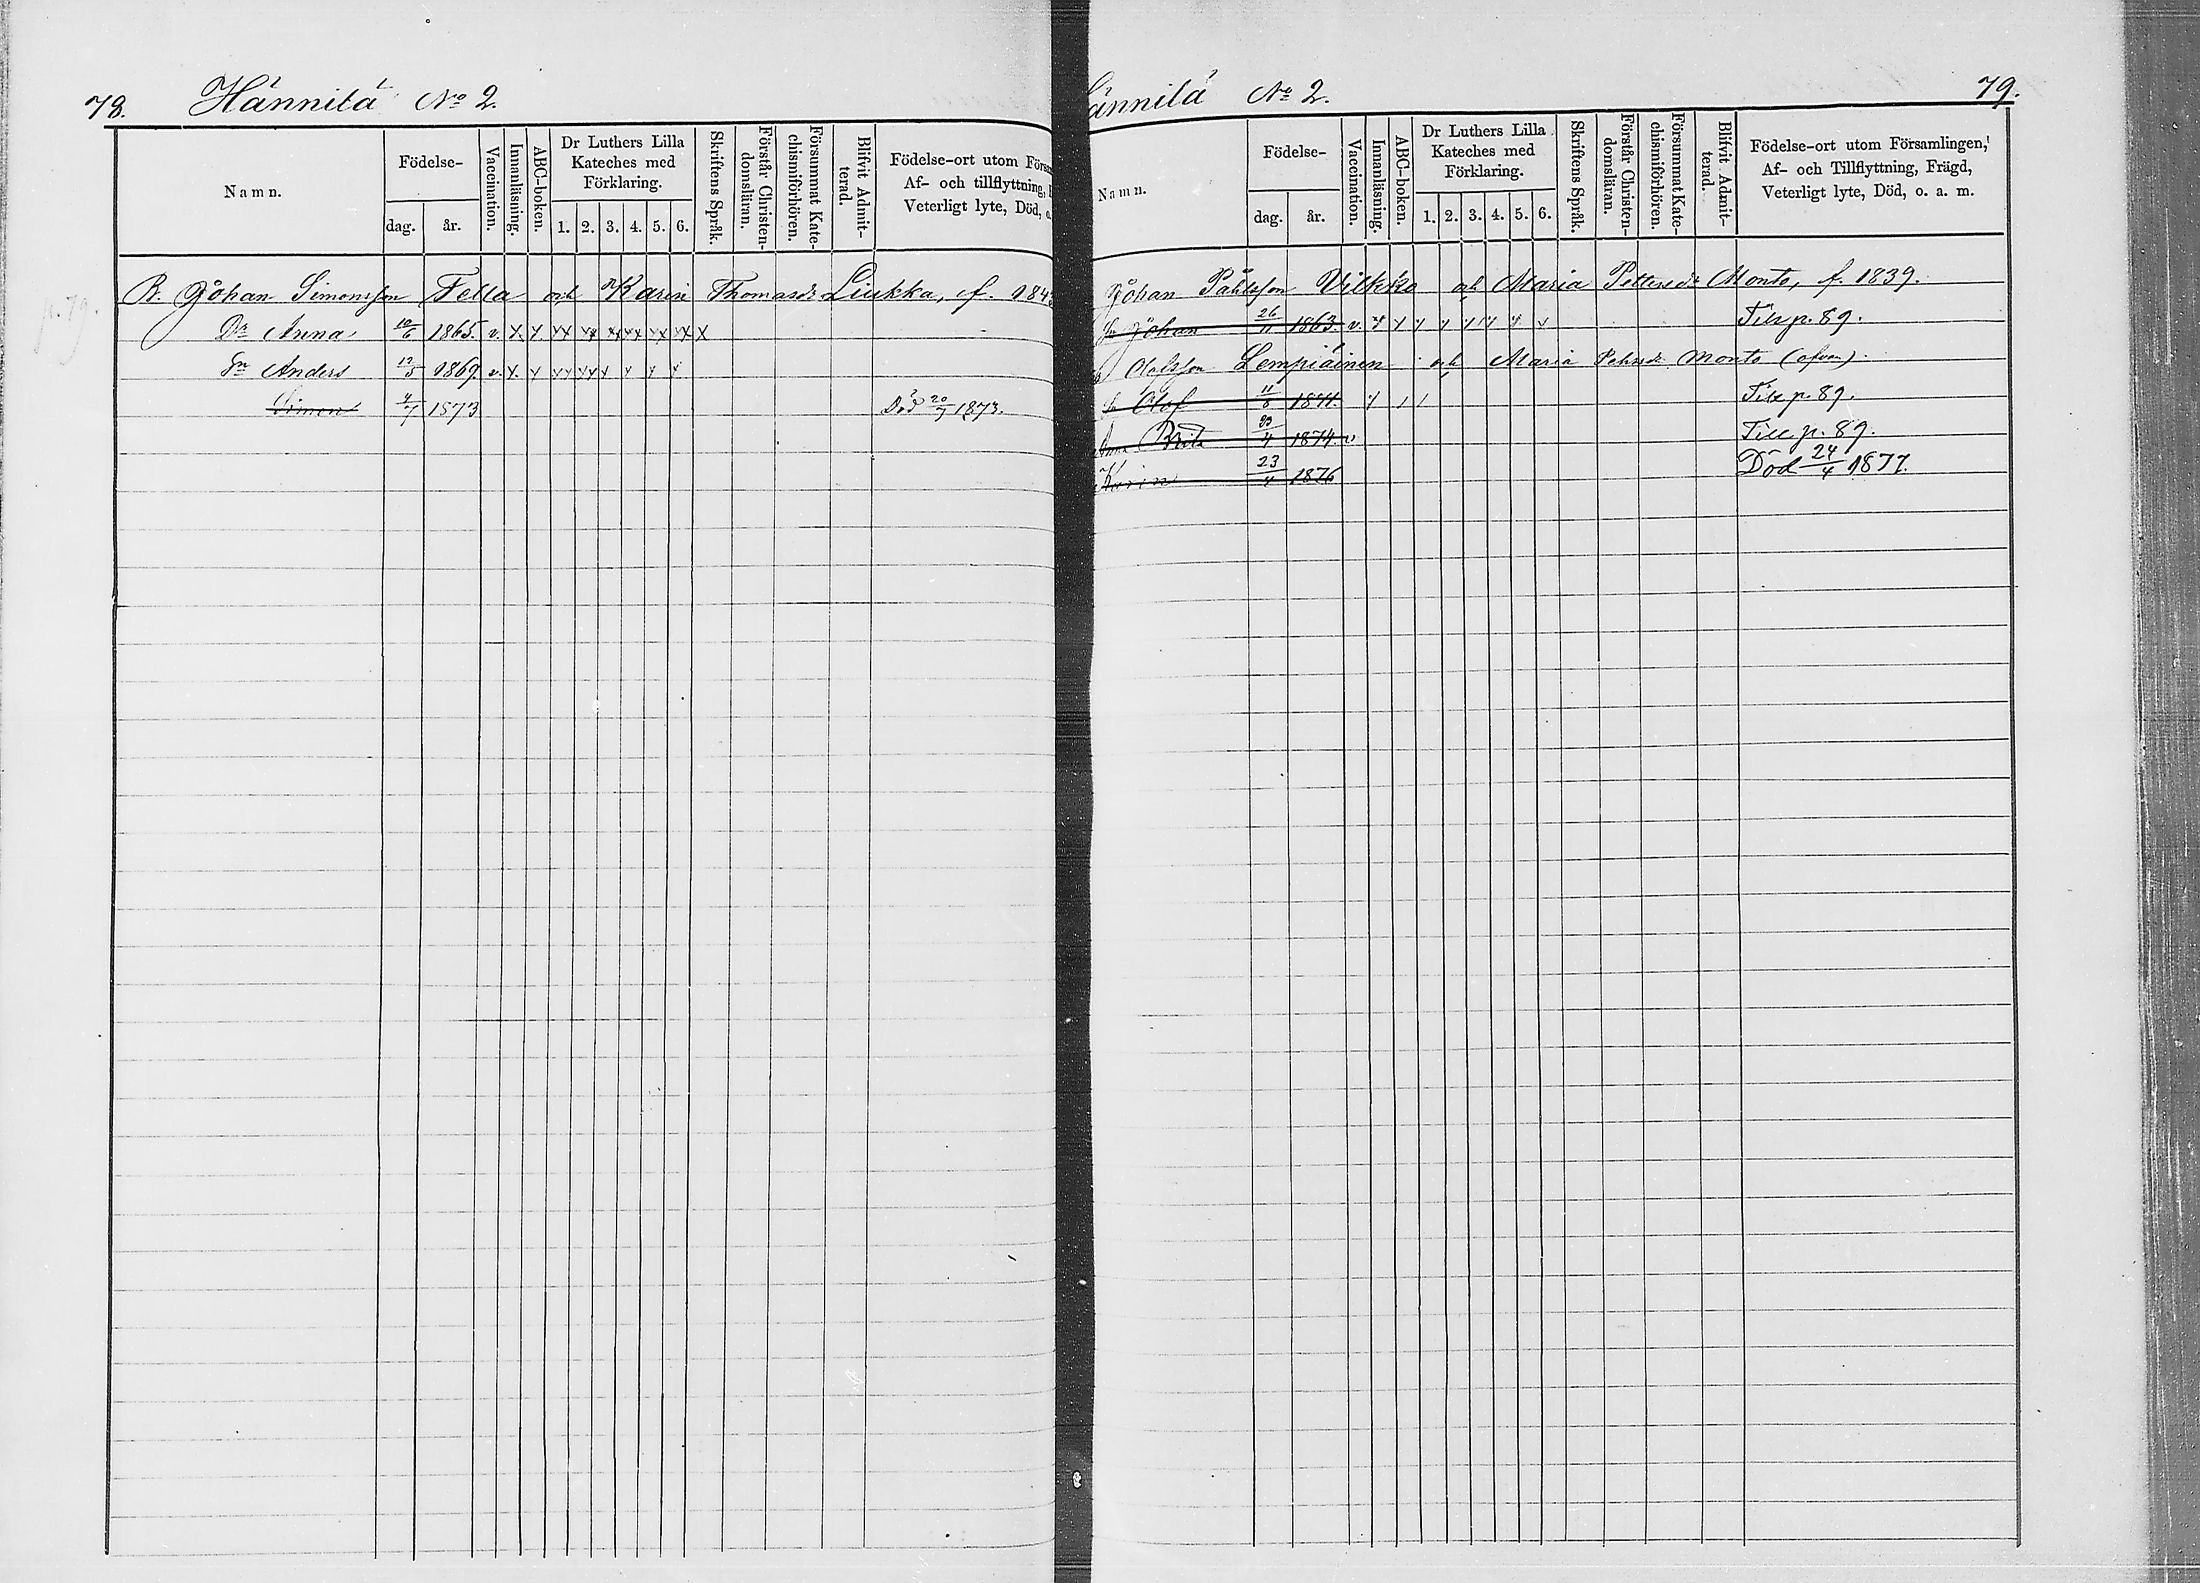 78. Hännilä No 2.
Namn.
Födelse-
dag. år.
Vaccination.
Innanläsning.
ABC-boken.
Dr Luthers Lilla
Kateches med
Förklaring.
1. 2. 3. 4. 5. 6.
Skriftens Språk.
Förstår Christen-
domsläran.
Försummat Kate-
chismiförhören.
Blifvit Admit-
terad.
Födelse-ort utom Försam
Af- och tillflyttning,
Veterligt lyte, Död, o.
B. Johan Simonsson Tella och Karin Thomasdr Liukka, f. 184
p. 79.
Dr Anna 10/6 1865. v. x x xx xx xx xx xx xx x
Sn Anders 13/5 1869 v. x x xx xx x x x x
Simon 4/7 1873 Död 20/7 1873.
ännilä No 2. 79.
Namn.
Födelse-
dag. år.
Vaccination.
Innanläsning.
ABC-boken.
Dr Luthers Lilla
Kateches med
Förklaring.
1. 2. 3. 4. 5. 6.
Skriftens Språk.
Förstår Christen-
domsläran.
Försummat Kate-
chismiförhören.
Blifvit Admit-
terad.
Födelse-ort utom Församlingen,
Af- och Tillflyttning, Frägd,
Veterligt lyte, Död, o. a. m.
Johan Påhlsson Vilkko och Maria Pettersdr Monto, f. 1839.
Sn Johan 26/11 1863. v. x x x x x x x x Till p. 89.
Olofsson Lempiäinen och Maria Monto (ofvan).
Sn Olof 11/8 1871. Till p. 89.
Anna Brita 4 1874. v Till p. 89.
Karin 23/4 1876 Död 24/4 1877.